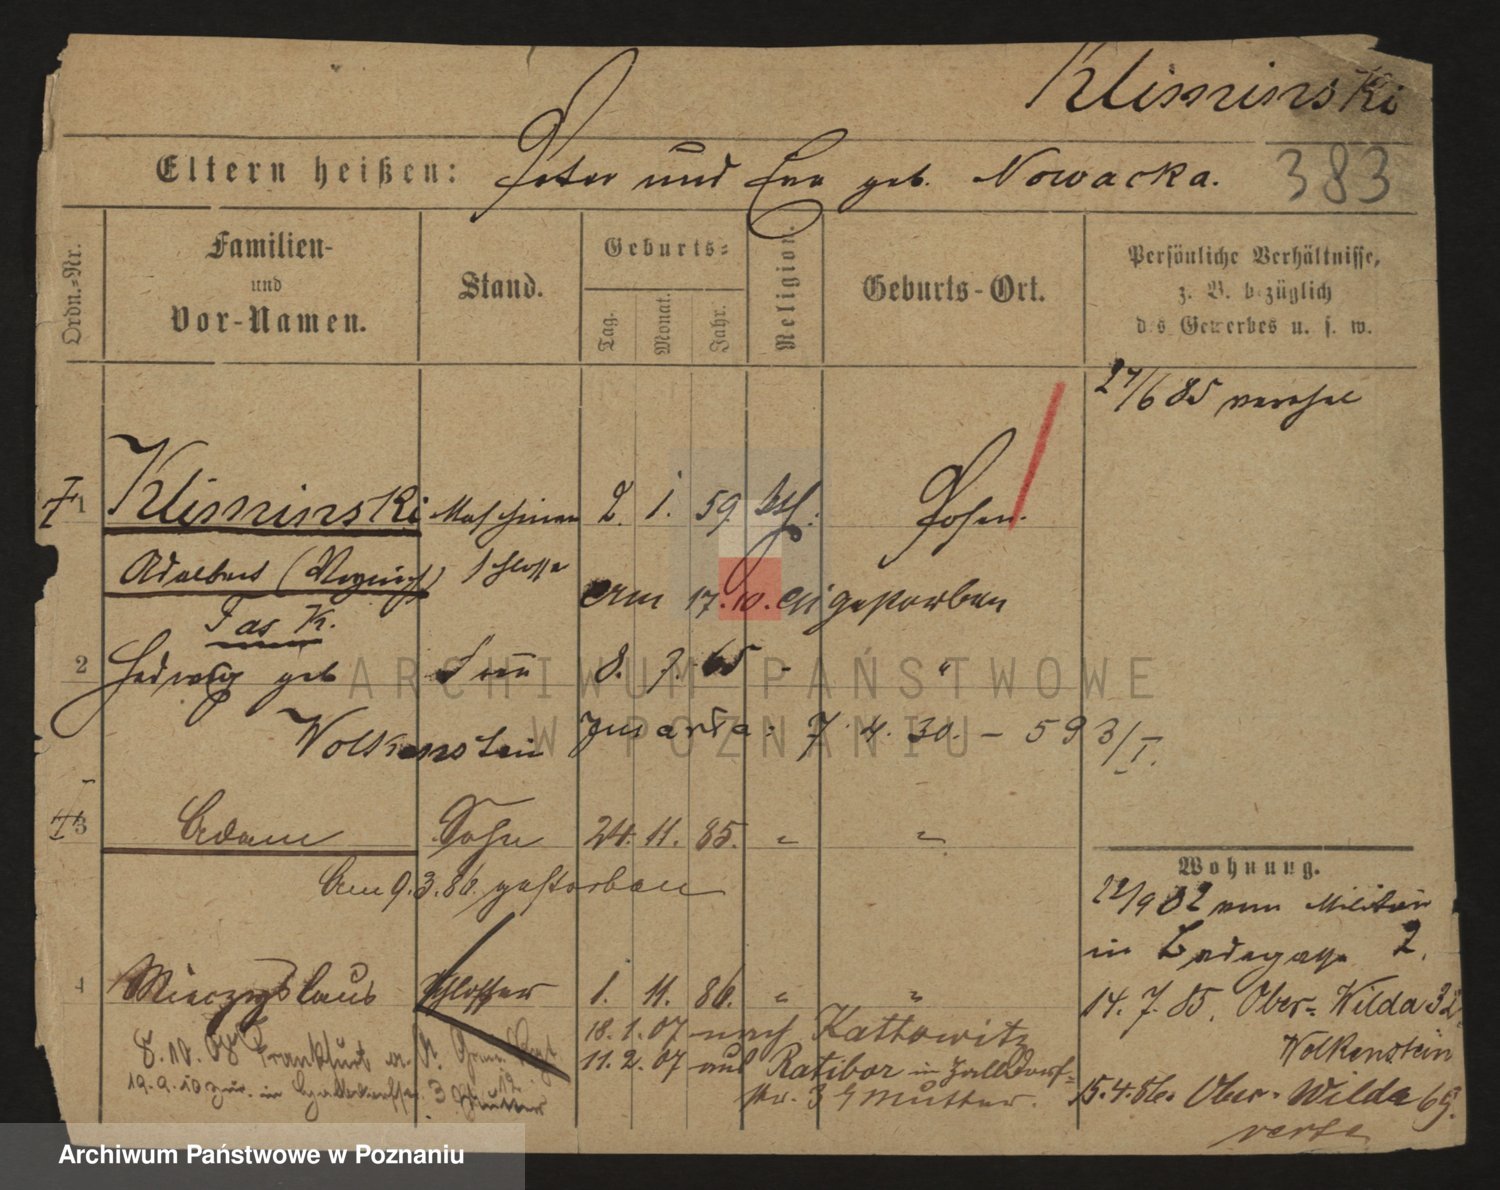 Kliminski
Eltern heißen: Peter und Eva geb. Nowacka.
383
Ordn.-Nr.
Familien-
und
Vor-Namen.
Stand.
Geburts-
Tag.
Monat.
Jahr.
Religion.
Geburts-Ort.
Persönliche Verhältnisse,
z. B. bezüglich
des Gewerbes u. s. w.
27/6 85 verehel
1 Kliminski Maschinen 2. 1. 59. kth. Posen.
Adalbert ( ) schlosser
am 17. 10. gestorben
K.
2 Hedwig geb Frau 8. 7. 65 " "
Wolkenstein 7. 4. 30. – 593/I.
3 Adam Sohn 24. 11. 85. " "
Am 9. 3. 86. gestorben
Wohnung.
22/9 82 vom Militär
in 2.
4 Mieczyslaus Schlosser 1. 11. 86. " "
14. 7. 85. Ober-Wilda 32
Wolkenstein
18. 1. 07 nach Kattowitz
8. 10. Frankfurt a. Gren. Regt.
12
11. 2. 07 aus Ratibor in Halldorf-
str. 3 Mutter.
19. 9. 10 zur. in 3 Mutter
15. 4. 86. Ober-Wilda 69.
verte
ARCHIWUM PAŃSTWOWE
W POZNANIU
Archiwum Państwowe w Poznaniu